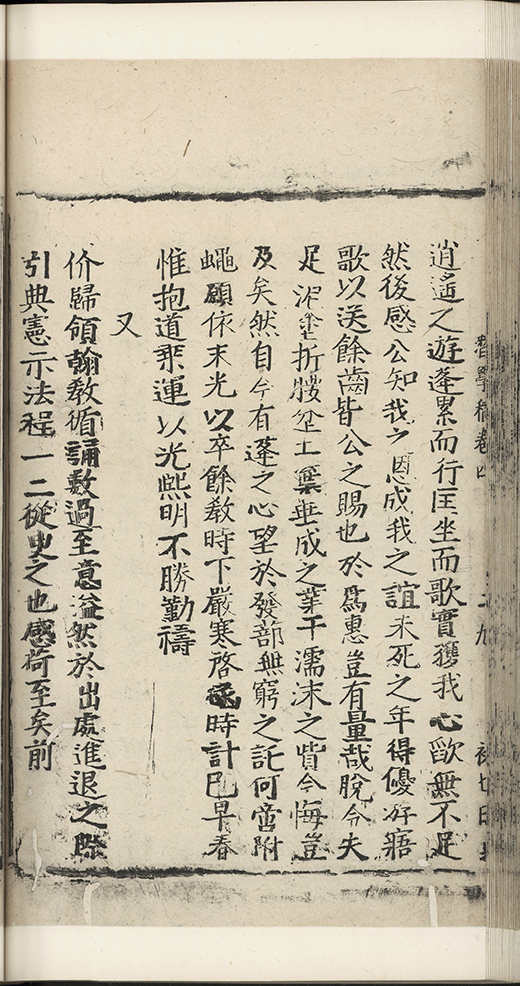 習學稿卷四 二九
逍遙之遊蓬累而行匡坐而歌實獲我心歐無不足
然後感公知我之恩成我之誼未死之年得優游寤
歌以送餘齒皆公之賜也於爲惠豈有量哉脫令夫
足塗折腰塵土棄垂成之業干濡沫之皆今悔豈
及矣然自今有蓬之心望於發蔀無窮之託何啻附
蠅願依末光以卒餘教時下嚴寒啓函時計已早春
惟抱道乘運以光熙明不勝勤禱
又
价歸領翰教循誦數過至意溢然於出處進退之際
引典憲示法程一二從臾之也感荷至矣前